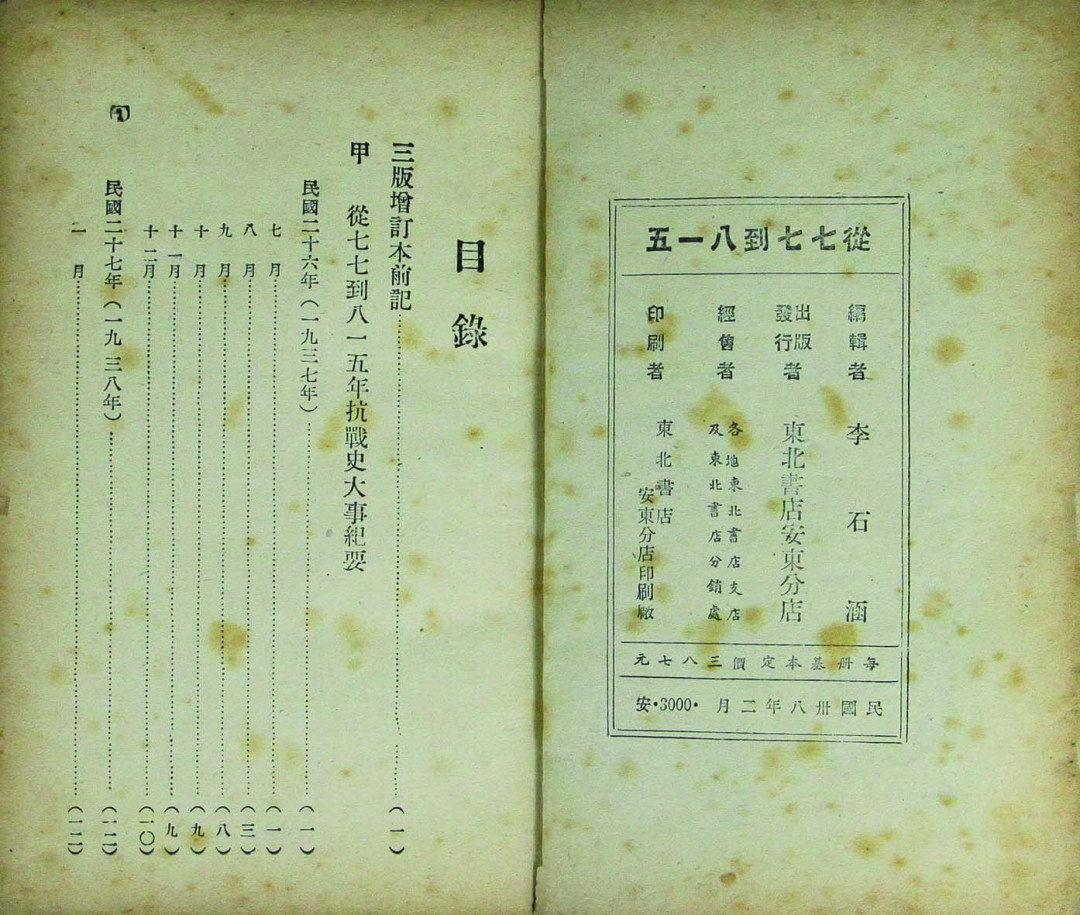 從七七到八一五
編輯者 李石涵
出版發行者 東北書店安東分店
經售者 各地東北書店支店及東北書店分銷處
印刷者 東北書店安東分店印刷廠
每冊基本定價三八七元
民國卅八年二月·3000·安
目錄
三版增訂本前記……(一)
甲 從七七到八一五年抗戰史大事紀要
民國二十六年(一九三七年)……(一)
七月……(一)
八月……(三)
九月……(八)
十月……(九)
十一月……(九)
十二月……(一〇)
民國二十七年(一九三八年)……(一二)
一月……(一二)
1